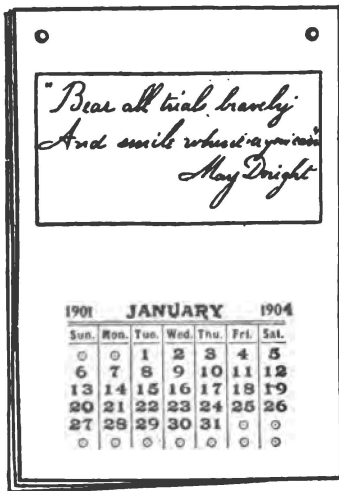 "Bear all trials bravely
And smile whene'er you can"
May Dwight
1901 JANUARY 1904
Sun. Mon. Tue. Wed. Thu. Fri. Sat.
1 2 3 4 5
6 7 8 9 10 11 12
13 14 15 16 17 18 19
20 21 22 23 24 25 26
27 28 29 30 31